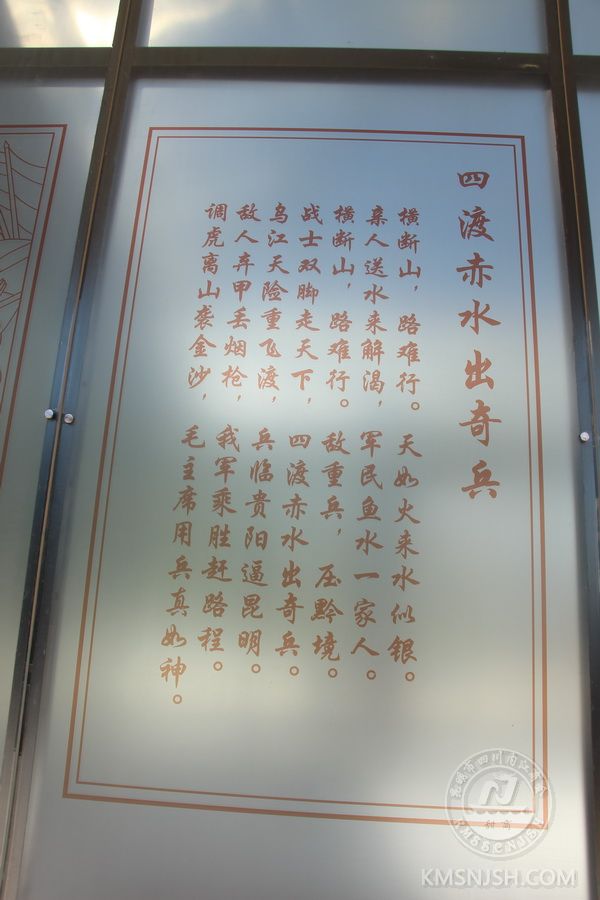 四渡赤水出奇兵
横断山，路难行。天如火来水似银。
亲人送水来解渴，军民鱼水一家人。
横断山，路难行。敌重兵，压黔境。
战士双脚走天下，四渡赤水出奇兵。
乌江天险重飞渡，兵临贵阳逼昆明。
敌人弃甲丢烟枪，我军乘胜赶路程。
调虎离山袭金沙，毛主席用兵真如神。
昆明市四川内江商会
KMSSCNJSH
和商
KMSNJSH.COM